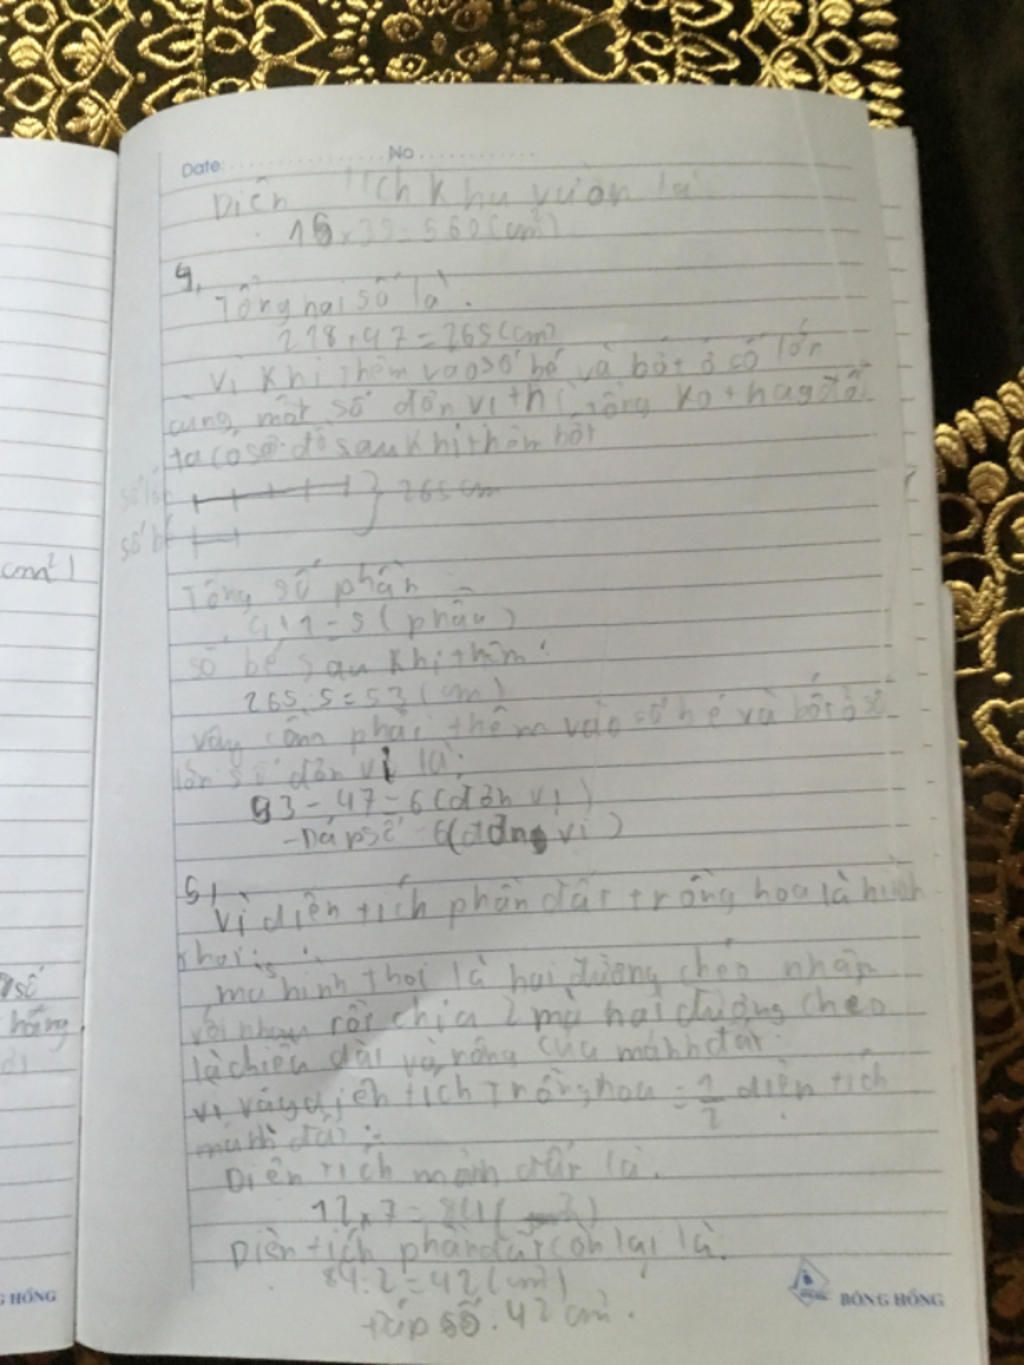 Date: No
Diện tích khu vườn là
16 × 35 = 560 (cm²)
4,
Tổng hai số là.
218 + 47 = 265 (cm)
Vì khi thêm vào số bé và bớt ở số lớn
cùng một số đơn vị thì tổng ko thay đổi
ta có sơ đồ sau khi thêm bớt
số lớn 265 cm
số bé
cm²)
Tổng số phần
4 + 1 = 5 (phần)
số bé sau khi thêm:
265 : 5 = 53 (cm)
vậy cần phải thêm vào số bé và bớt ở số
lớn số đơn vị là:
53 - 47 = 6 (đơn vị)
- Đáp số 6 (đơn vị)
5,
Vì diện tích phần đất trồng hoa là hình
thoi
mà hình thoi là hai đường chéo nhập
với nhau rồi chia 2 mà hai đường chéo
là chiều dài và rộng của mảnh đất
vì vậy diện tích trồng hoa = 1/2 diện tích
mảnh đất:
Diện tích mảnh đất là.
12 × 7 = 84 (
Diện tích phần đất còn lại là.
84 : 2 = 42 (cm²)
Đáp số: 42 cm².
số
G HỒNG
BÔNG HỒNG